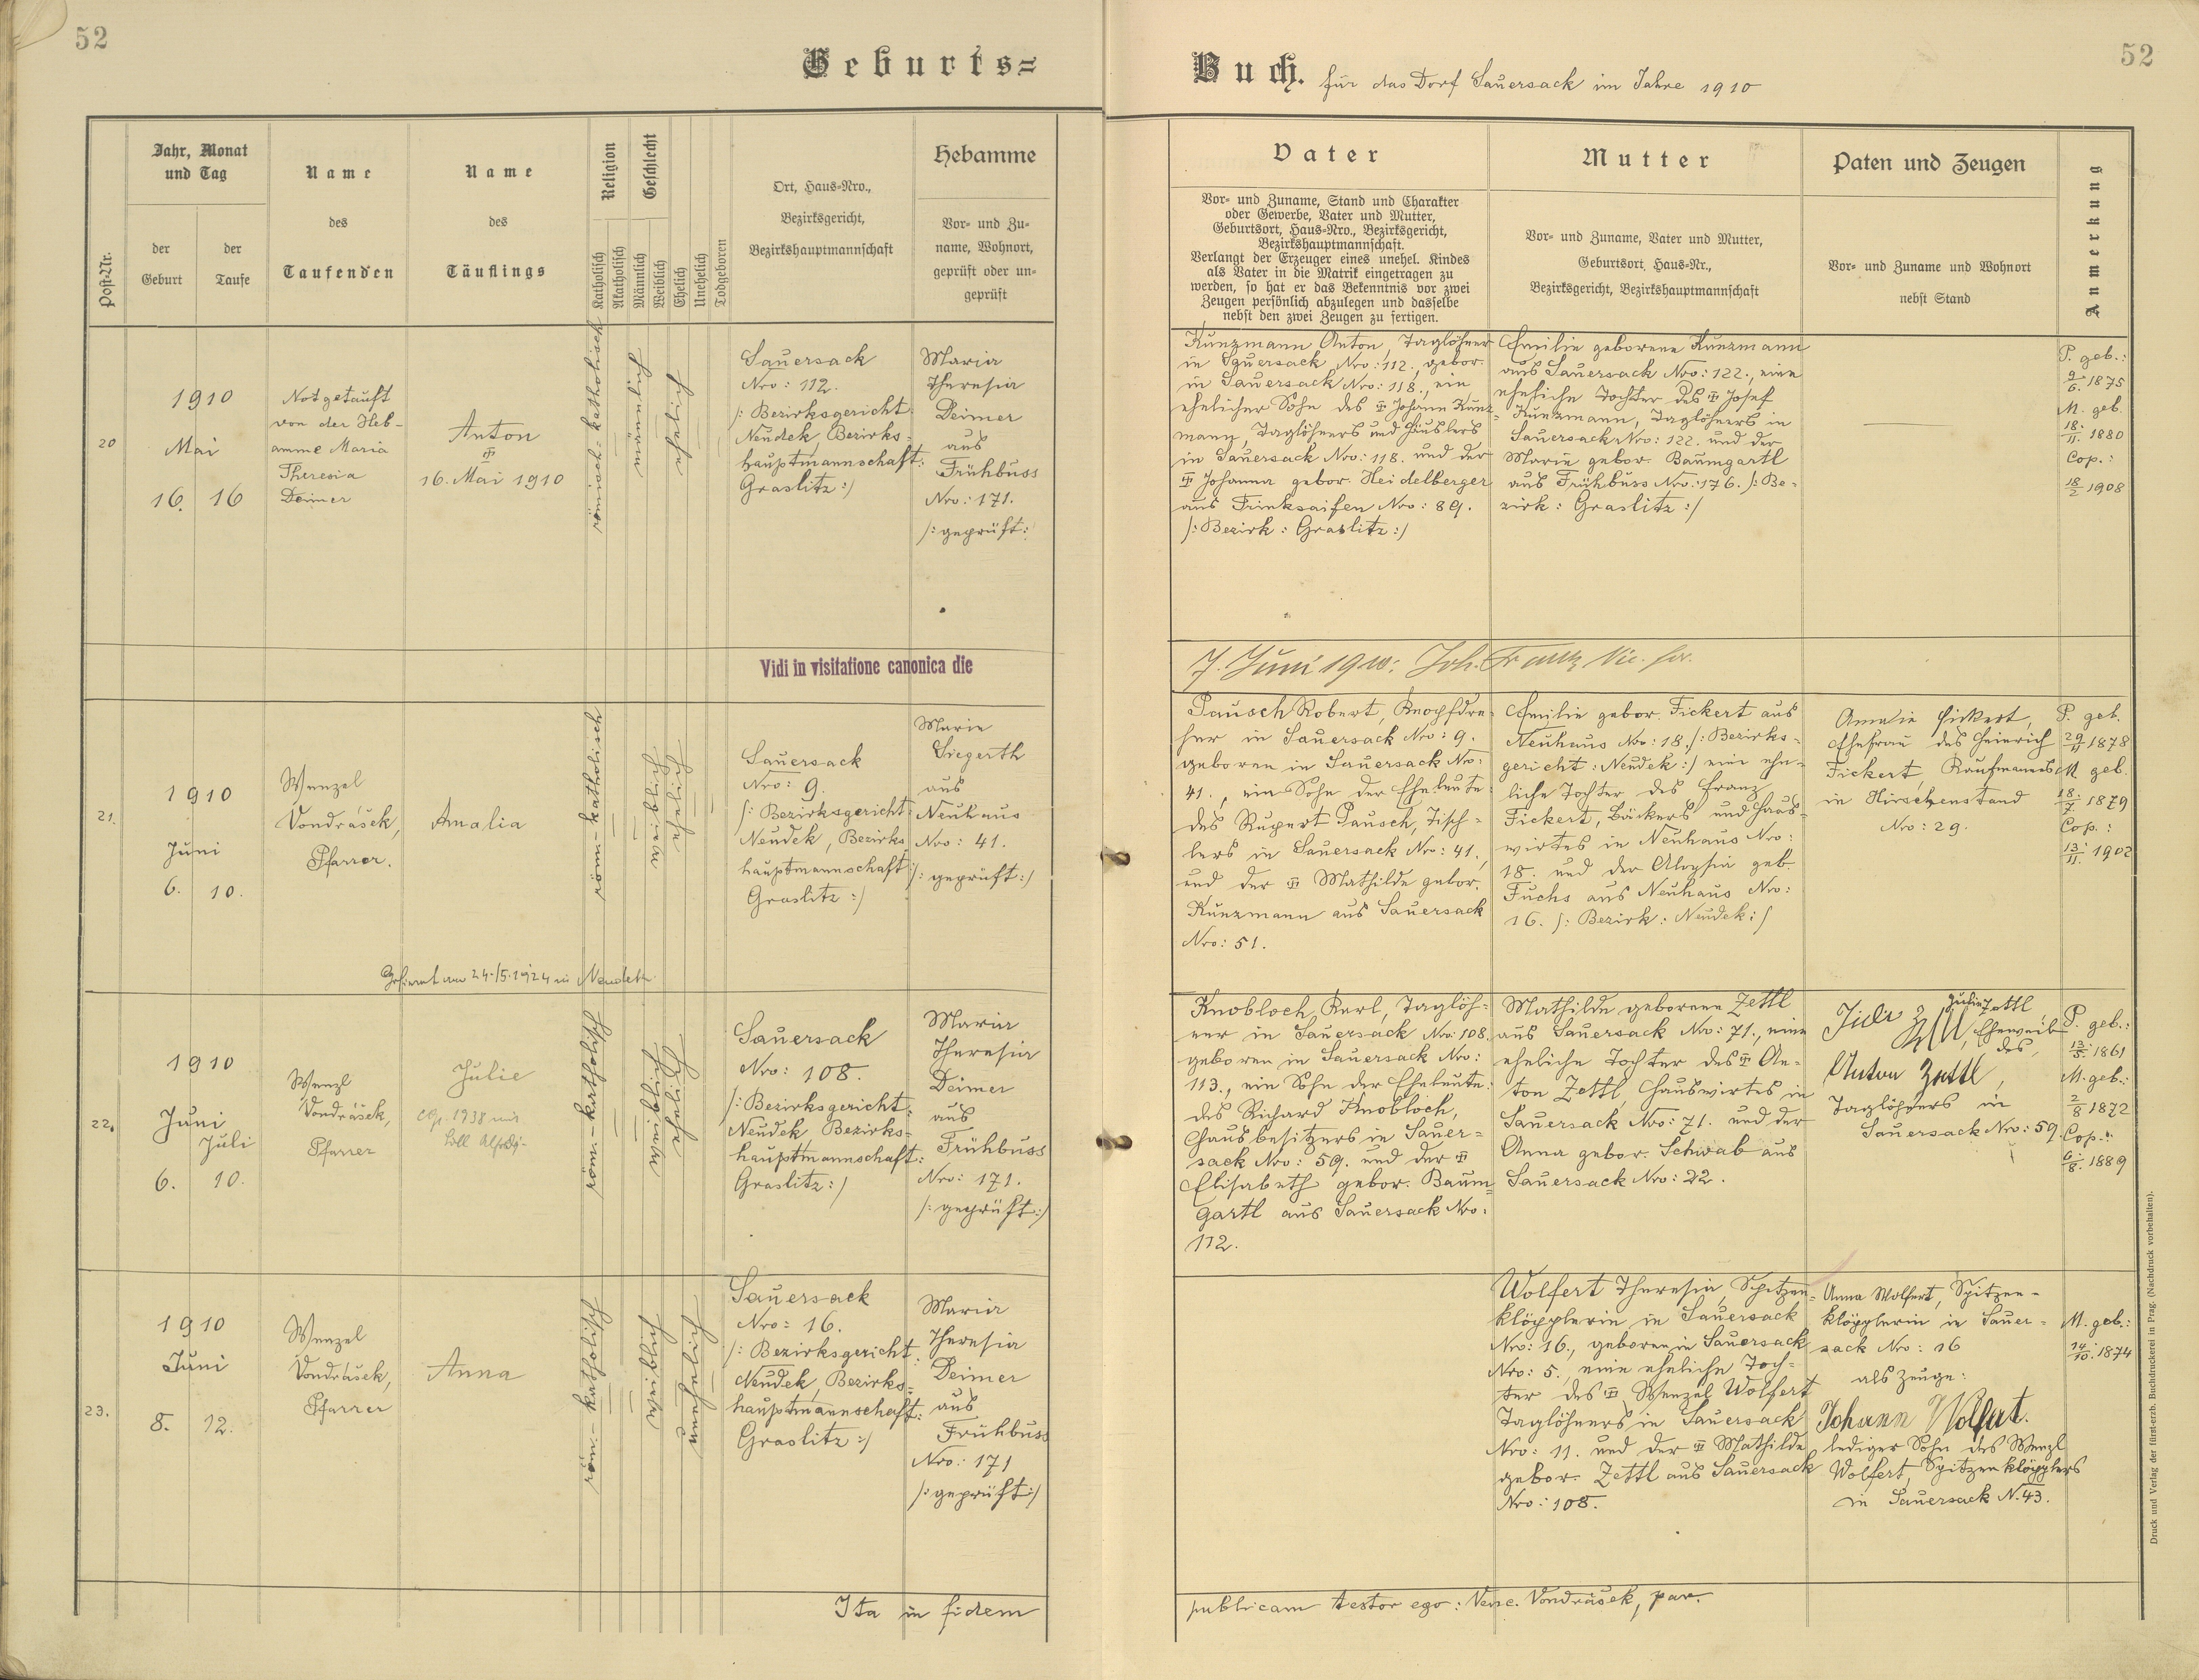 52
Geburts=
Buch. für das Dorf Sauersack im Jahre 1910
52
Post=Nr.
Jahr, Monat
und Tag
der
Geburt
der
Taufe
Name
des
Taufenden
Name
des
Täuflings
Religion
Katholisch
Akatholisch
Geschlecht
Männlich
Weiblich
Ehelich
Unehelich
Todgeboren
Ort, Haus=Nro.,
Bezirksgericht,
Bezirkshauptmannschaft
Hebamme
Vor= und Zu=
name, Wohnort,
geprüft oder un=
geprüft
Vater
Vor= und Zuname, Stand und Charakter
oder Gewerbe, Vater und Mutter,
Geburtsort, Haus=Nro., Bezirksgericht,
Bezirkshauptmannschaft.
Verlangt der Erzeuger eines unehel. Kindes
als Vater in die Matrik eingetragen zu
werden, so hat er das Bekenntnis vor zwei
Zeugen persönlich abzulegen und dasselbe
nebst den zwei Zeugen zu fertigen.
Mutter
Vor= und Zuname, Vater und Mutter,
Geburtsort, Haus=Nr.,
Bezirksgericht, Bezirkshauptmannschaft
Paten und Zeugen
Vor= und Zuname und Wohnort
nebst Stand
Anmerkung
20
1910
Mai
16. 16
Notgetauft
von der Heb-
amme Maria
Theresia
Deimer
Anton
✝
16. Mai 1910
römisch=katholisch
männlich
ehelich
Sauersack
Nro: 112.
/: Bezirksgericht
Neudek, Bezirks=
hauptmannschaft:
Graslitz :/
Maria
Theresia
Deimer
aus
Frühbuss
Nro: 171.
/: geprüft :/
Kunzmann Anton, Taglöhner
in Sauersack Nro: 112., gebor.
in Sauersack Nro: 118., ein
ehelicher Sohn des ✝ Johann Kunz=
mann, Taglöhners und Häuslers
in Sauersack Nro: 118. und der
✝ Johanna gebor. Heidelberger
aus Trinksaifen Nro: 89.
/: Bezirk: Graslitz :/
Emilie geborene Kunzmann
aus Sauersack Nro: 122., eine
eheliche Tochter des ✝ Josef
Kunzmann, Taglöhners in
Sauersack Nro: 122. und der
Marie gebor. Baumgartl
aus Frühbuss Nro: 176. /: Be=
zirk: Graslitz :/
P. geb.:
9/6. 1875
M. geb.
18./11. 1880
Cop.:
18/2 1908
Vidi in visitatione canonica die
7. Juni 1910: Joh. Franz Vic. for.
21.
1910
Juni
6. 10.
Wenzel
Vondrášek,
Pfarrer.
Amalia
röm.-katholisch
weiblich
ehelich
Sauersack
Nro: 9.
/: Bezirksgericht:
Neudek, Bezirks
hauptmannschaft:
Graslitz :/
Marie
Siegerth
aus
Neuhaus
Nro: 41.
/: geprüft :/
Pausch Robert, Knopfdre=
her in Sauersack Nro: 9.
geboren in Sauersack No:
41., ein Sohn der Eheleute:
des Rupert Pausch, Tisch=
lers in Sauersack Nro: 41.,
und der ✝ Mathilde gebor.
Kunzmann aus Sauersack
Nro: 51.
Emilie gebor. Fickert aus
Neuhaus Nro: 18. /: Bezirks=
gericht: Neudek :/ eine ehe=
liche Tochter des Franz
Fickert, Bäckers und Haus=
wirtes in Neuhaus Nro:
18. und der Aloysia geb.
Fuchs aus Neuhaus Nro:
16. /: Bezirk: Neudek :/
Amalie Fickert,
Ehefrau des Heinrich
Fickert, Kaufmannes
in Hirschenstand
Nro: 29.
P. geb.
29/11 1878
M. geb.
18./7. 1879
Cop.:
13./11. 1902
Gefirmt am 24./5. 1924 in Neudek
22.
1910
Juni
Juli
6. 10.
Wenzl
Vondrášek,
Pfarrer
Julie
Cop. 1938 mit
röm.-katholisch
weiblich
ehelich
Sauersack
Nro: 108.
/: Bezirksgericht:
Neudek Bezirks=
hauptmannschaft:
Graslitz :/
Maria
Theresia
Deimer
aus
Frühbuss
Nro: 171.
/: geprüft :/
Knobloch Karl, Taglöh=
ner in Sauersack Nro: 108.
geboren in Sauersack Nro:
113., ein Sohn der Eheleute:
des Richard Knobloch,
Hausbesitzers in Sauer=
sack Nro: 59. und der ✝
Elisabeth gebor. Baum=
gartl aus Sauersack Nro:
112.
Mathilde geborene Zettl
aus Sauersack Nro: 71., eine
eheliche Tochter des ✝ An=
ton Zettl, Hauswirtes in
Sauersack Nro: 71. und der
Anna gebor. Schwab aus
Sauersack Nro: 22.
Julie Zettl
Eheweib
des
Anton Zettl,
Taglöhners in
Sauersack Nro: 59.
P. geb.:
13./5. 1861
M. geb.:
2/8 1872
Cop.:
6./8. 1889
23.
1910
Juni
8. 12.
Wenzel
Vondrášek,
Pfarrer
Anna
röm.-katholisch
weiblich
unehelich
Sauersack
Nro: 16.
/: Bezirksgericht:
Neudek, Bezirks=
hauptmannschaft:
Graslitz :/
Maria
Theresia
Deimer
aus
Frühbuss
Nro: 171
/: geprüft :/
Wolfert Theresia, Spitzen=
klöpplerin in Sauersack
Nro: 16., geboren in Sauersack
Nro: 5., eine eheliche Toch=
ter des ✝ Wenzel Wolfert
Taglöhners in Sauersack
Nro: 11. und der ✝ Mathilde
gebor. Zettl aus Sauersack
Nro: 108.
Anna Wolfert, Spitzen-
klöpplerin in Sauer=
sack Nro: 16
als Zeuge:
Johann Wolfert.
lediger Sohn des Wenzl
Wolfert, Spitzenklöpplers
in Sauersack N. 43.
M. geb.:
14./10. 1874
Ita in fidem
publicam testor ego: Venc. Vondrášek, par.
Druck und Verlag der fürst-erzb. Buchdruckerei in Prag. (Nachdruck vorbehalten).